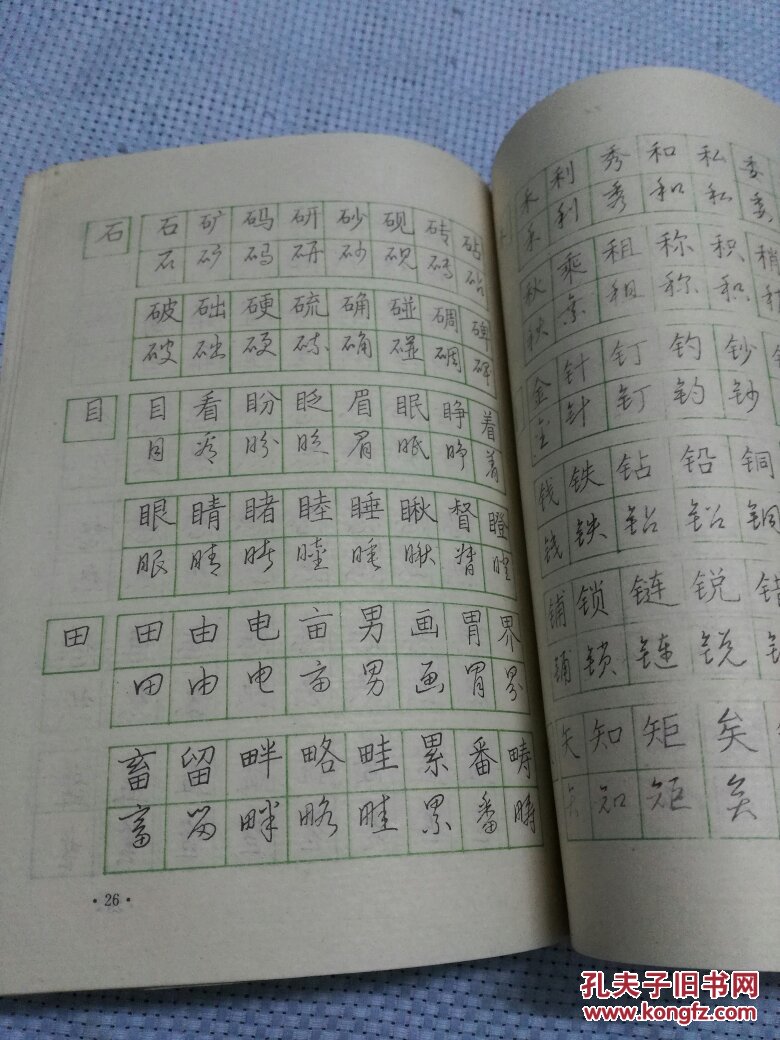 石 石 矿 码 研 砂 砚 砖 砧
石 矿 码 研 砂 砚 砖 砧
破 础 硬 硫 确 碰 碉 碑
破 础 硬 硫 确 碰 碉 碑
目 目 看 盼 眨 眉 眠 睁 着
目 看 盼 眨 眉 眠 睁 着
眼 睛 睹 睦 睡 瞅 督 瞪
眼 睛 睹 睦 睡 瞅 督 瞪
田 田 由 电 亩 男 画 胃 界
田 由 电 亩 男 画 胃 界
畜 留 畔 略 畦 累 番 畴
畜 留 畔 略 畦 累 番 畴
·26·
禾 利 秀 和 私 委
禾 利 秀 和 私 委
秋 乘 租 称 积 稍
秋 乘 租 称 积
金 针 钉 钓 钞
金 针 钉 钓 钞
钱 铁 钻 铅 铜
钱 铁 钻 铅 铜
铺 锁 链 锐 错
铺 锁 链 锐
矢 知 矩 矣
矢 知 矩 矣
孔夫子旧书网
www.kongfz.com